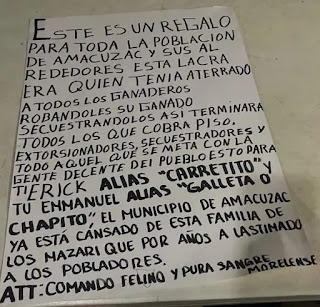 ESTE ES UN REGALO
PARA TODA LA POBLACION
DE AMACUZAC Y SUS AL
REDEDORES ESTA LACRA
ERA QUIEN TENIA ATERRADO
A TODOS LOS GANADEROS
ROBANDOLES SU GANADO
SECUESTRANDOLOS ASI TERMINARA
TODOS LOS QUE COBRA PISO.
EXTORSIONADORES, SECUESTRADORES Y
TODO AQUEL QUE SE META CON LA
GENTE DECENTE DEl PUEBLO ESTO PARA
TI ERICK ALIAS "CARRETITO" Y
TU EMMANUEL ALIAS "GALLETA O
CHAPITO" EL MUNICIPIO DE AMACUZAC
YA ESTÁ CANSADO DE ESTA FAMILIA DE
LOS MAZARI QUE POR AÑOS A LASTIMADO
A LOS POBLADORES.
ATT: COMANDO FELINO Y PURA SANGRE
MORELENSE